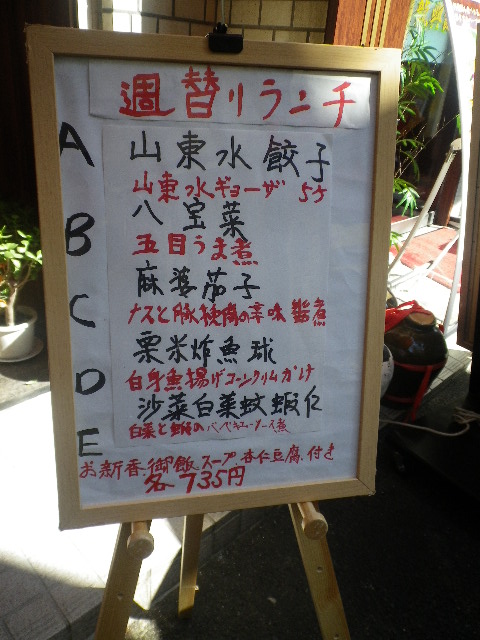 週替りランチ
A 山東水餃子
山東水ギョーザ 5ケ
B 八宝菜
五目うま煮
C 麻婆茄子
ナスと豚挽肉の辛味醤煮
D 粟米炸魚球
白身魚揚げコーンクリムがけ
E 沙菜白菜蚊蝦仁
白菜と蝦のバーベキューソース煮
お新香、御飯、スープ、杏仁豆腐、付き
各735円